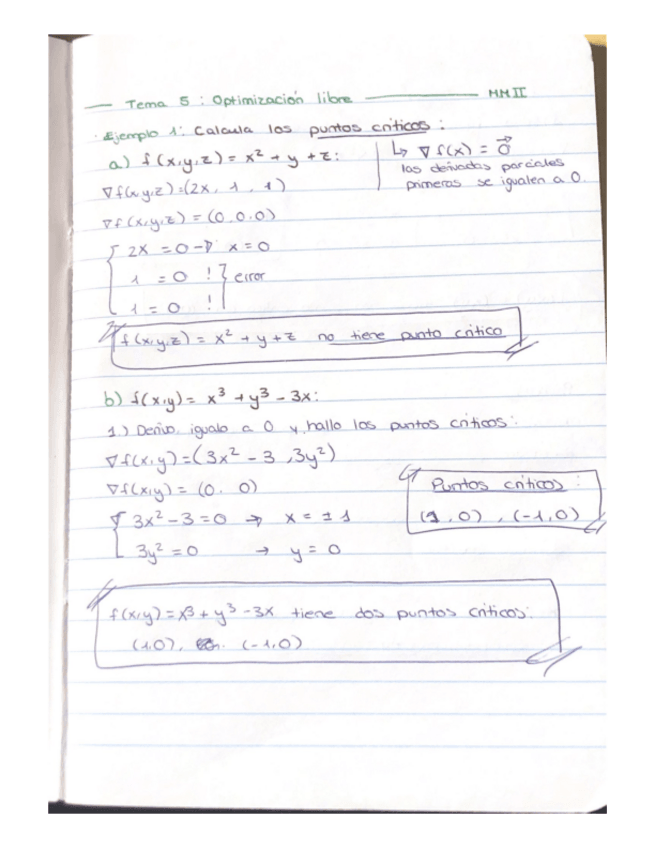 Tema 5 : Optimización libre MM II
Ejemplo 1: Calcula los puntos críticos :
↳ ∇f(x) = 0⃗
las derivadas parciales
primeras se igualen a 0.
a) f(x,y,z) = x² + y + z:
∇f(x,y,z)=(2x, 1, 1)
∇f(x,y,z) = (0,0,0)
2x = 0 → x = 0
1 = 0 ! } error
1 = 0 !
f(x,y,z) = x² + y + z no tiene punto crítico
b) f(x,y) = x³ + y³ - 3x:
1.) Derivo, igualo a 0 y hallo los puntos críticos:
∇f(x,y)=(3x² - 3, 3y²)
∇f(x,y) = (0, 0)
3x² - 3 = 0 → x = ± 1
3y² = 0 → y = 0
Puntos críticos :
(1,0), (-1,0)
f(x,y) = x³ + y³ - 3x tiene dos puntos críticos:
(1,0), (-1,0)